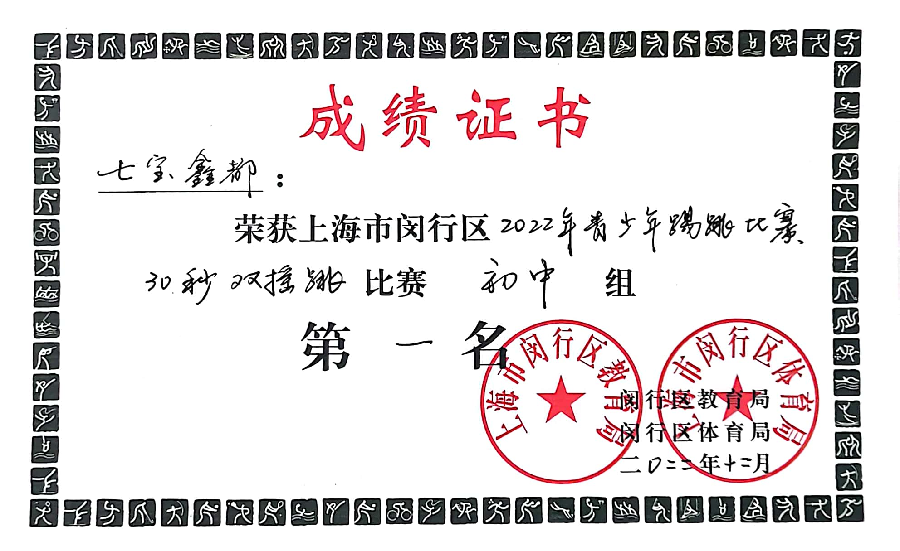 成绩证书
七宝鑫都：
荣获上海市闵行区2022年青少年踢跳比赛
30秒双摇跳比赛 初中 组
第一名
上海市闵行区教育局
上海市闵行区体育局
闵行区教育局
闵行区体育局
二〇二二年十二月